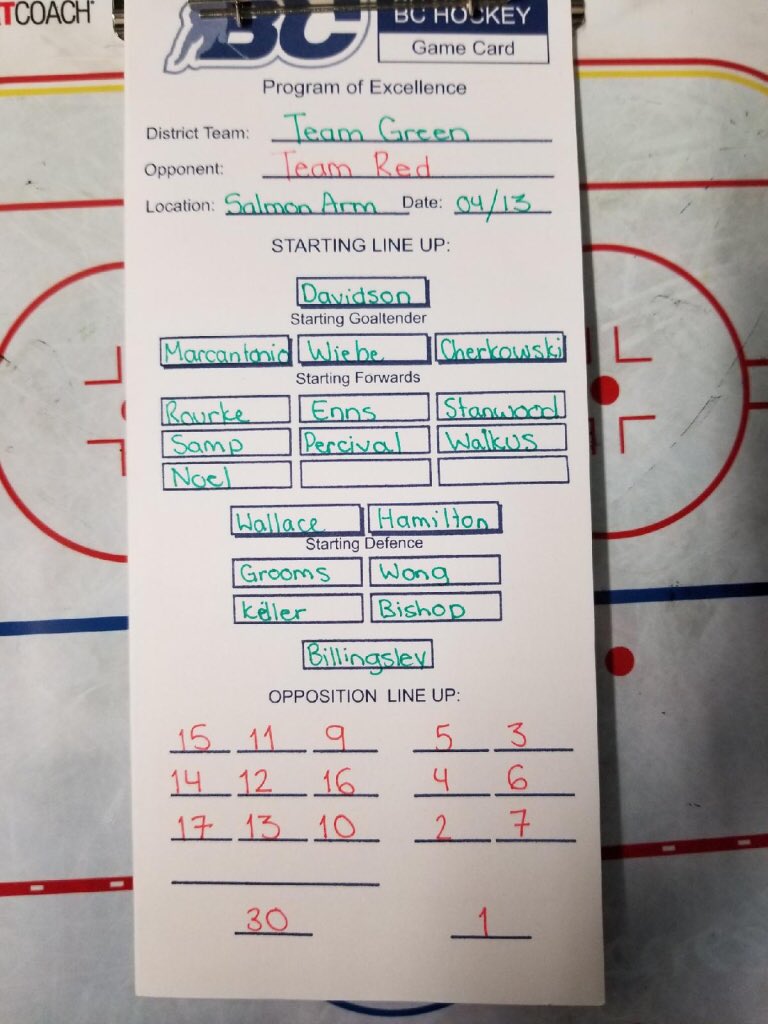 TCOACH
BC BC HOCKEY
Game Card
Program of Excellence
District Team: Team Green
Opponent: Team Red
Location: Salmon Arm Date: 04/13
STARTING LINE UP:
Davidson
Starting Goaltender
Marcantonio Wiebe Cherkowski
Starting Forwards
Rourke Enns Stanwood
Samp Percival Walkus
Noel
Wallace Hamilton
Starting Defence
Grooms Wong
Keller Bishop
Billingsley
OPPOSITION LINE UP:
15 11 9 5 3
14 12 16 4 6
17 13 10 2 7
30 1